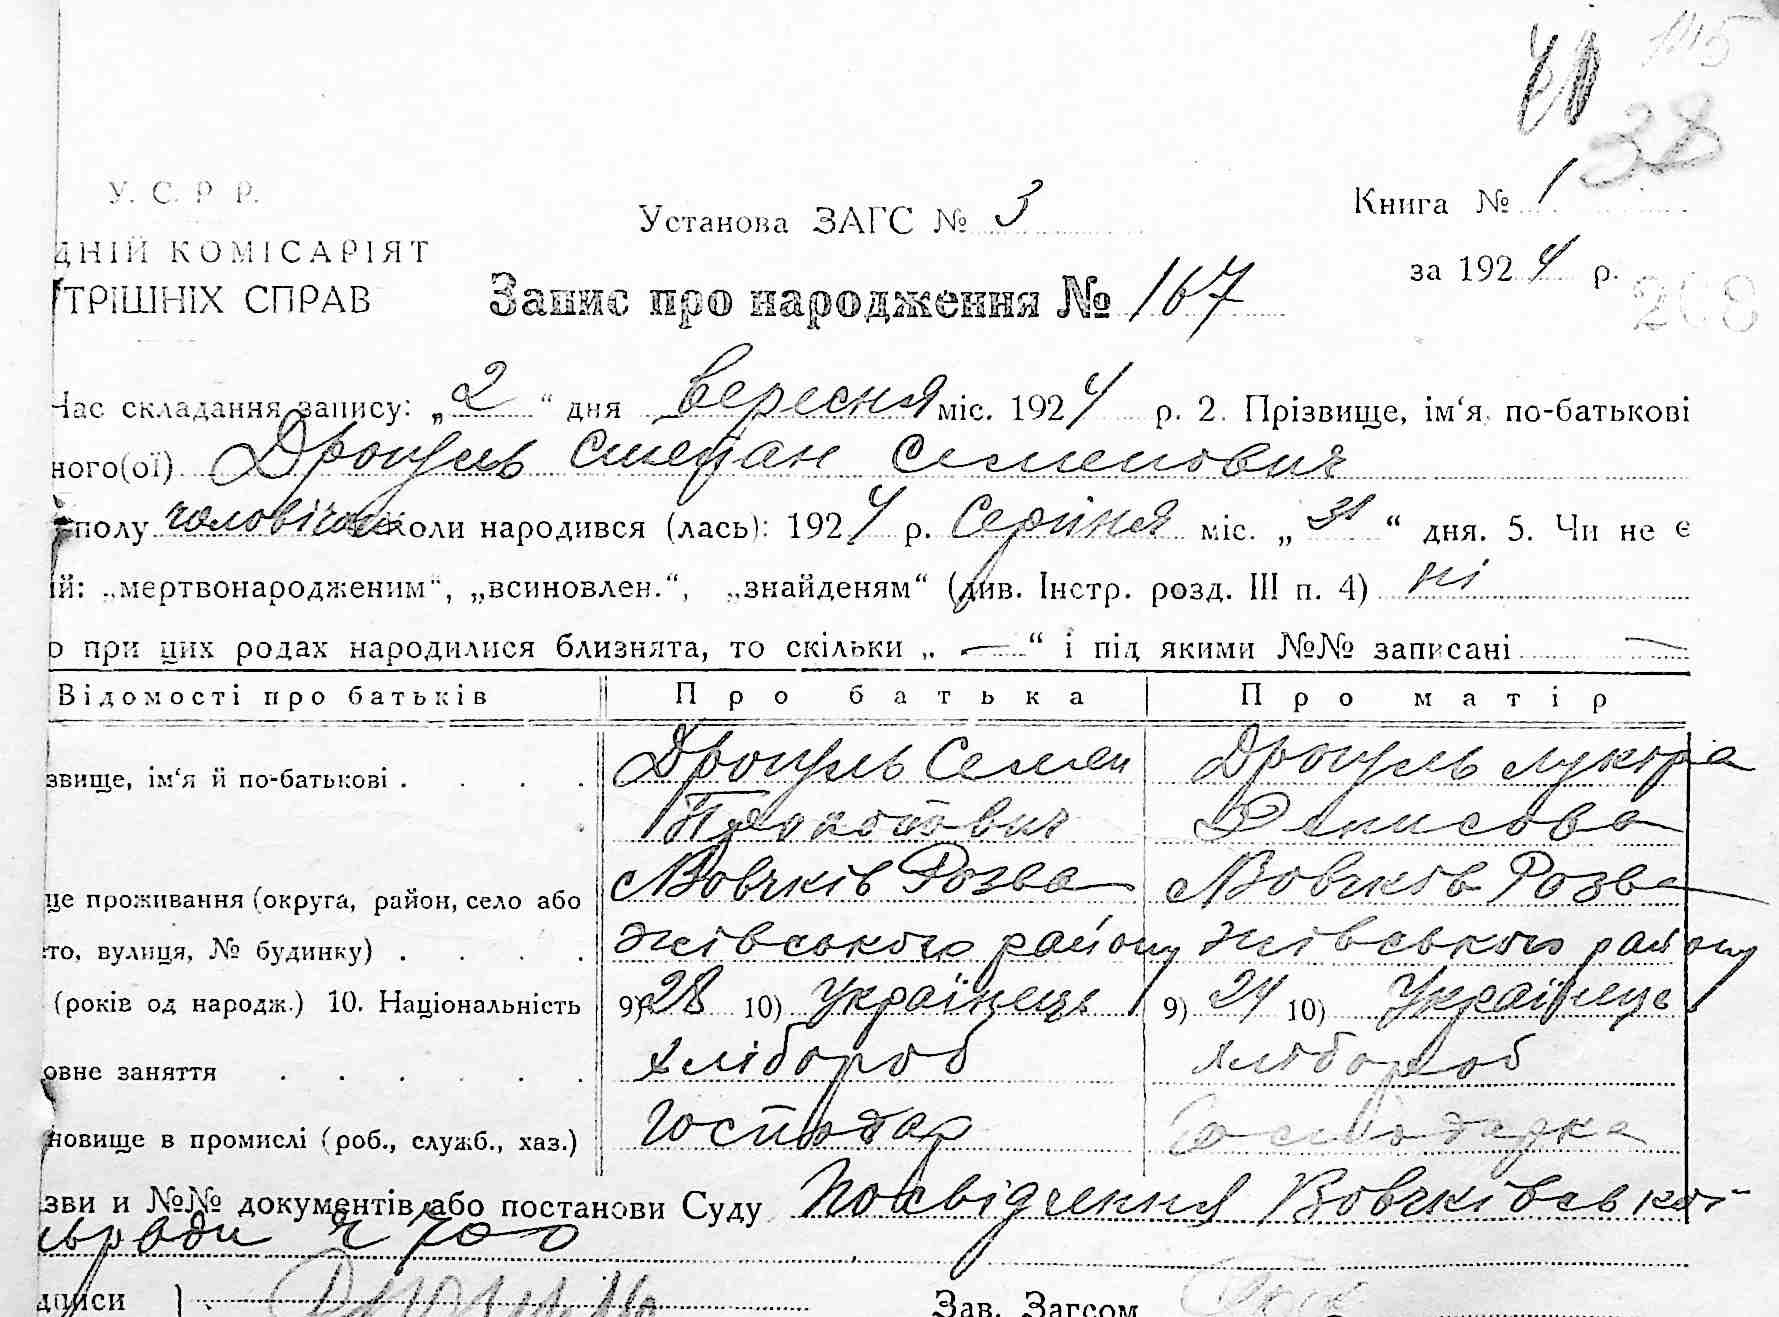 145
38
У. С. Р Р.
Установа ЗАГС № 3
Книга № 1
ДНІЙ КОМІСАРІЯТ
за 1924 р.
ТРІШНІХ СПРАВ
Запис про народження № 167
208
Час складання запису: „2“ дня вересня міс. 1924 р. 2. Прізвище, ім‘я, по-батькові
ного(ої) Дрогуль Степан Семенович
полу чоловічої Коли народився (лась): 1924 р. Серпня міс. „31“ дня. 5. Чи не є
ій: „мертвонародженим“, „всиновлен.“, „знайденям“ (див. Інстр. розд. III п. 4) ні
о при цих родах народилися близнята, то скільки „—“ і під якими №№ записані —
Відомості про батьків Про батька Про матір
звище, ім‘я й по-батькові . . . . Дрогуль Семен Дрогуль Лукіра
Прокопович Денисова
це проживання (округа, район, село або Вовчків Розва Вовчков Розва
то, вулиця, № будинку) . . . . жівського району жівського району
(років од народж.) 10. Національність 9) 28 10) Українець 9) 24 10) Українець
овне заняття . . . . . . хлібороб хлібороб
новище в промислі (роб., служб., хаз.) господар Господарка
зви и №№ документів або постанови Суду Посвідчення Вовчківської
ьради ч 700
дписи Зав. Загсом